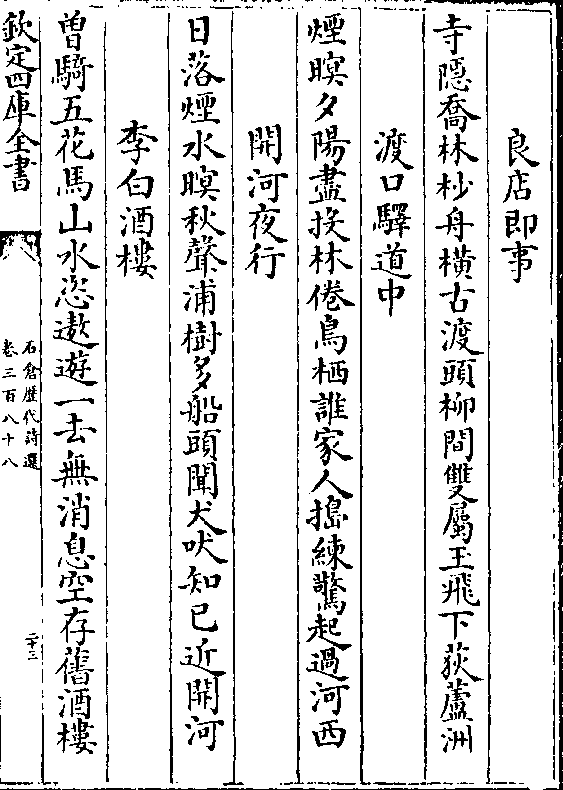 良店即事
寺隠喬林杪舟橫古渡頭柳間雙屬玉飛下荻蘆洲
渡口驛道中
煙暝夕陽盡投林倦鳥栖誰家人搗練驚起過河西
開河夜行
日落煙水暝秋聲浦樹多船頭聞犬吠知已近開河
李白酒樓
曽騎五花馬山水恣遨遊一去無消息空存舊酒樓
欽定四庫全書
石倉歴代詩選
卷三百八十八
二十三